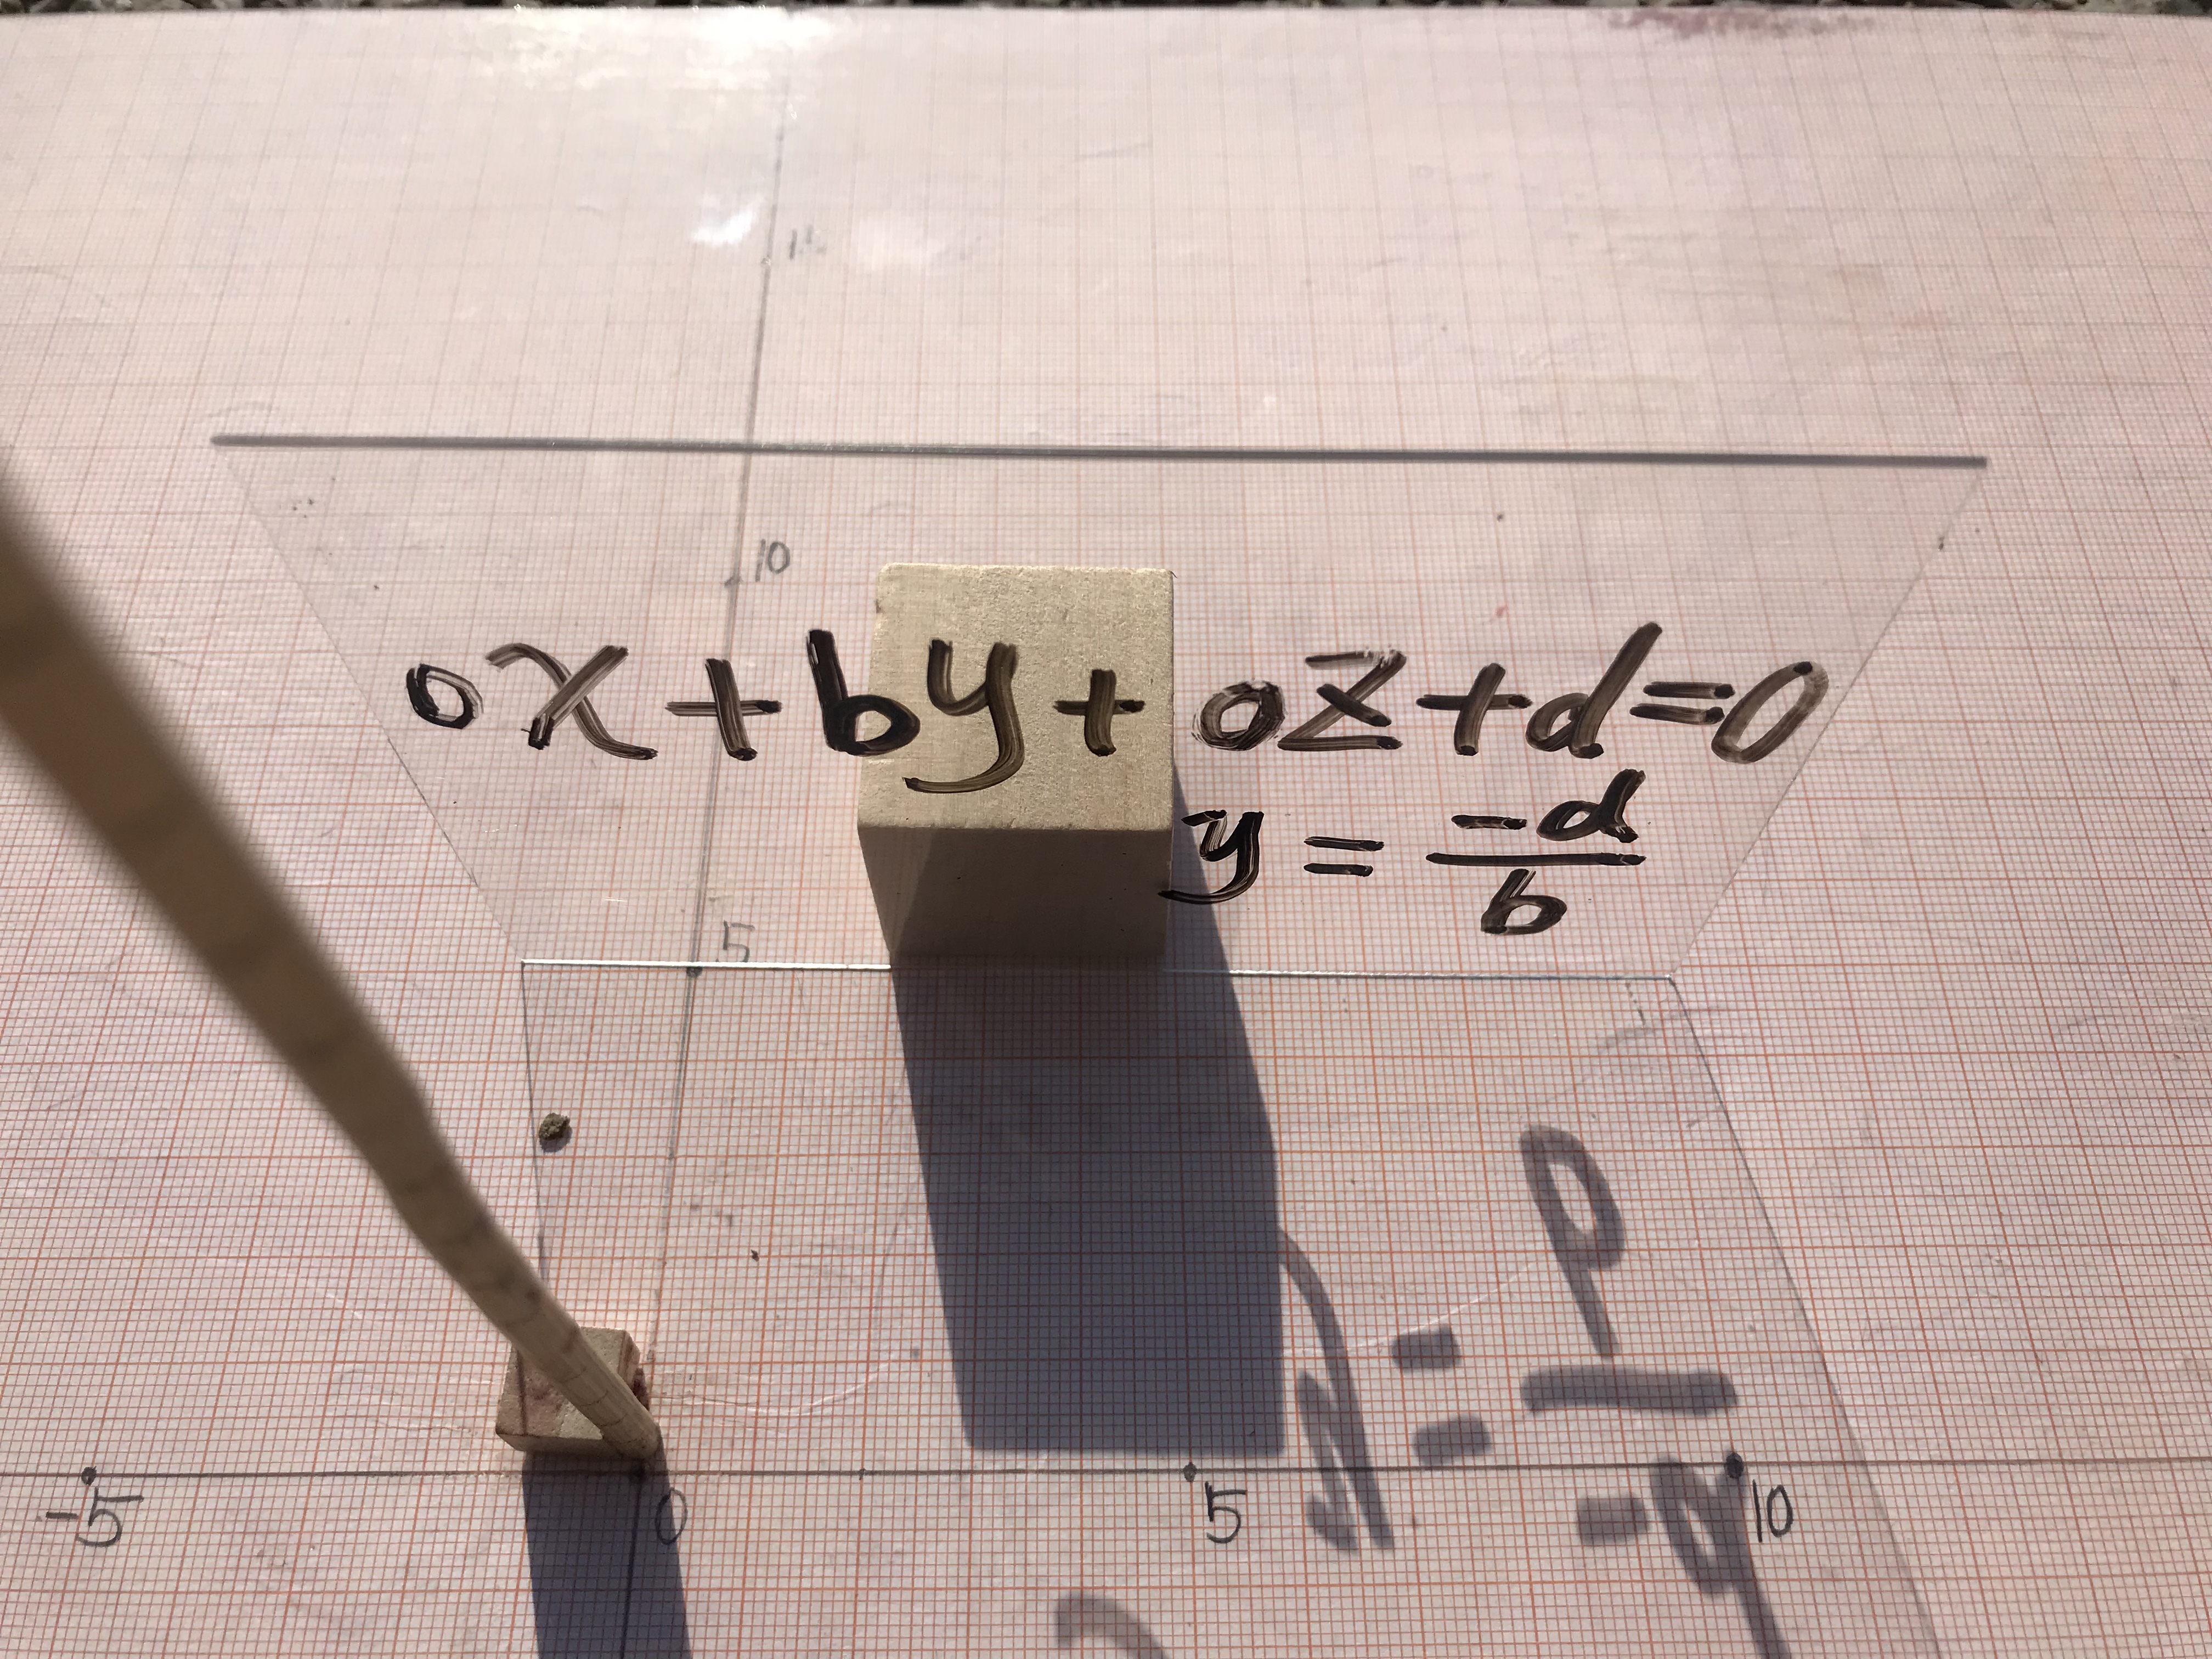 10
0x+by+0z+d=0
y = -d/b
5
-5 0 5 10